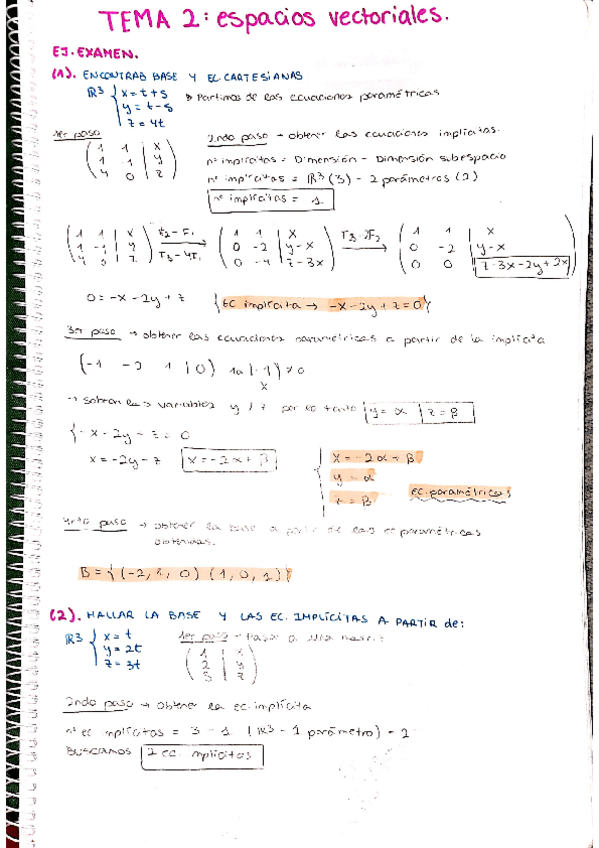 TEMA 2: espacios vectoriales.
EJ. EXAMEN.
(1). ENCONTRAR BASE Y EC. CARTESIANAS
ℝ3 { x = t + s
y = t - s
z = 4t
Partimos de las ecuaciones paramétricas
1er paso
( 1 1 | x )
( 1 -1 | y )
( 4 0 | z )
2ndo paso → obtener las ecuaciones implícitas.
nº implícitas = Dimensión - Dimensión subespacio
nº implícitas = ℝ3 (3) - 2 parámetros (2)
nº implícitas = 1
( 1 1 | x ) F2 - F1 ( 1 1 | x ) F3 - 2F2 ( 1 1 | x )
( 1 -1 | y ) → ( 0 -2 | y-x ) → ( 0 -2 | y-x )
( 4 0 | z ) F3 - 4F1 ( 0 -4 | z-3x ) ( 0 0 | z-3x-2y+2x )
0 = -x - 2y + z { EC implícita → -x - 2y + z = 0 }
3er paso → obtener las ecuaciones paramétricas a partir de la implícita
(-1 -2 1 | 0) |-1| ≠ 0
x
→ sobran las variables y / z por lo tanto y = α z = β
{ -x - 2y - z = 0
x = -2y - z x = -2α + β
{ x = -2α + β
y = α
z = β
ec. paramétricas
4rto paso → obtener la base a partir de las ec paramétricas
obtenidas.
B = { (-2, 1, 0) (1, 0, 1) }
(2). HALLAR LA BASE Y LAS EC. IMPLÍCITAS A PARTIR de:
ℝ3 { x = t
y = 2t
z = 3t
1er paso → Pasar a una matriz
( 1 | x )
( 2 | y )
( 3 | z )
2ndo paso → obtener la ec. implícita
nº ec implícitas = 3 - 1 (ℝ3 - 1 parámetro) = 2
BUSCAMOS 2 ec. implícitas